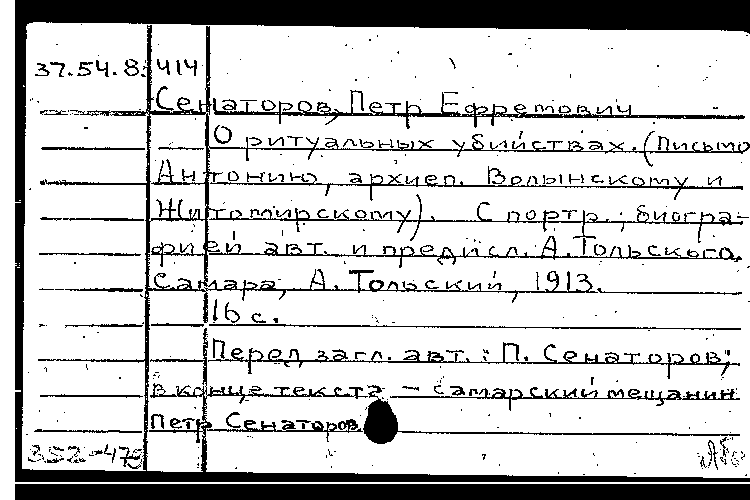 37.54.8:414
Сенаторов, Петр Ефремович
О ритуальных убийствах. (Письмо
Антонию, архиеп. Волынскому и
Житомирскому). С портр., биогра-
фией авт. и предисл. А. Тольского.
Самара, А. Тольский, 1913.
16 с.
Перед загл. авт.: П. Сенаторов;
в конце текста – самарский мещанин
Петр Сенаторов
352-475